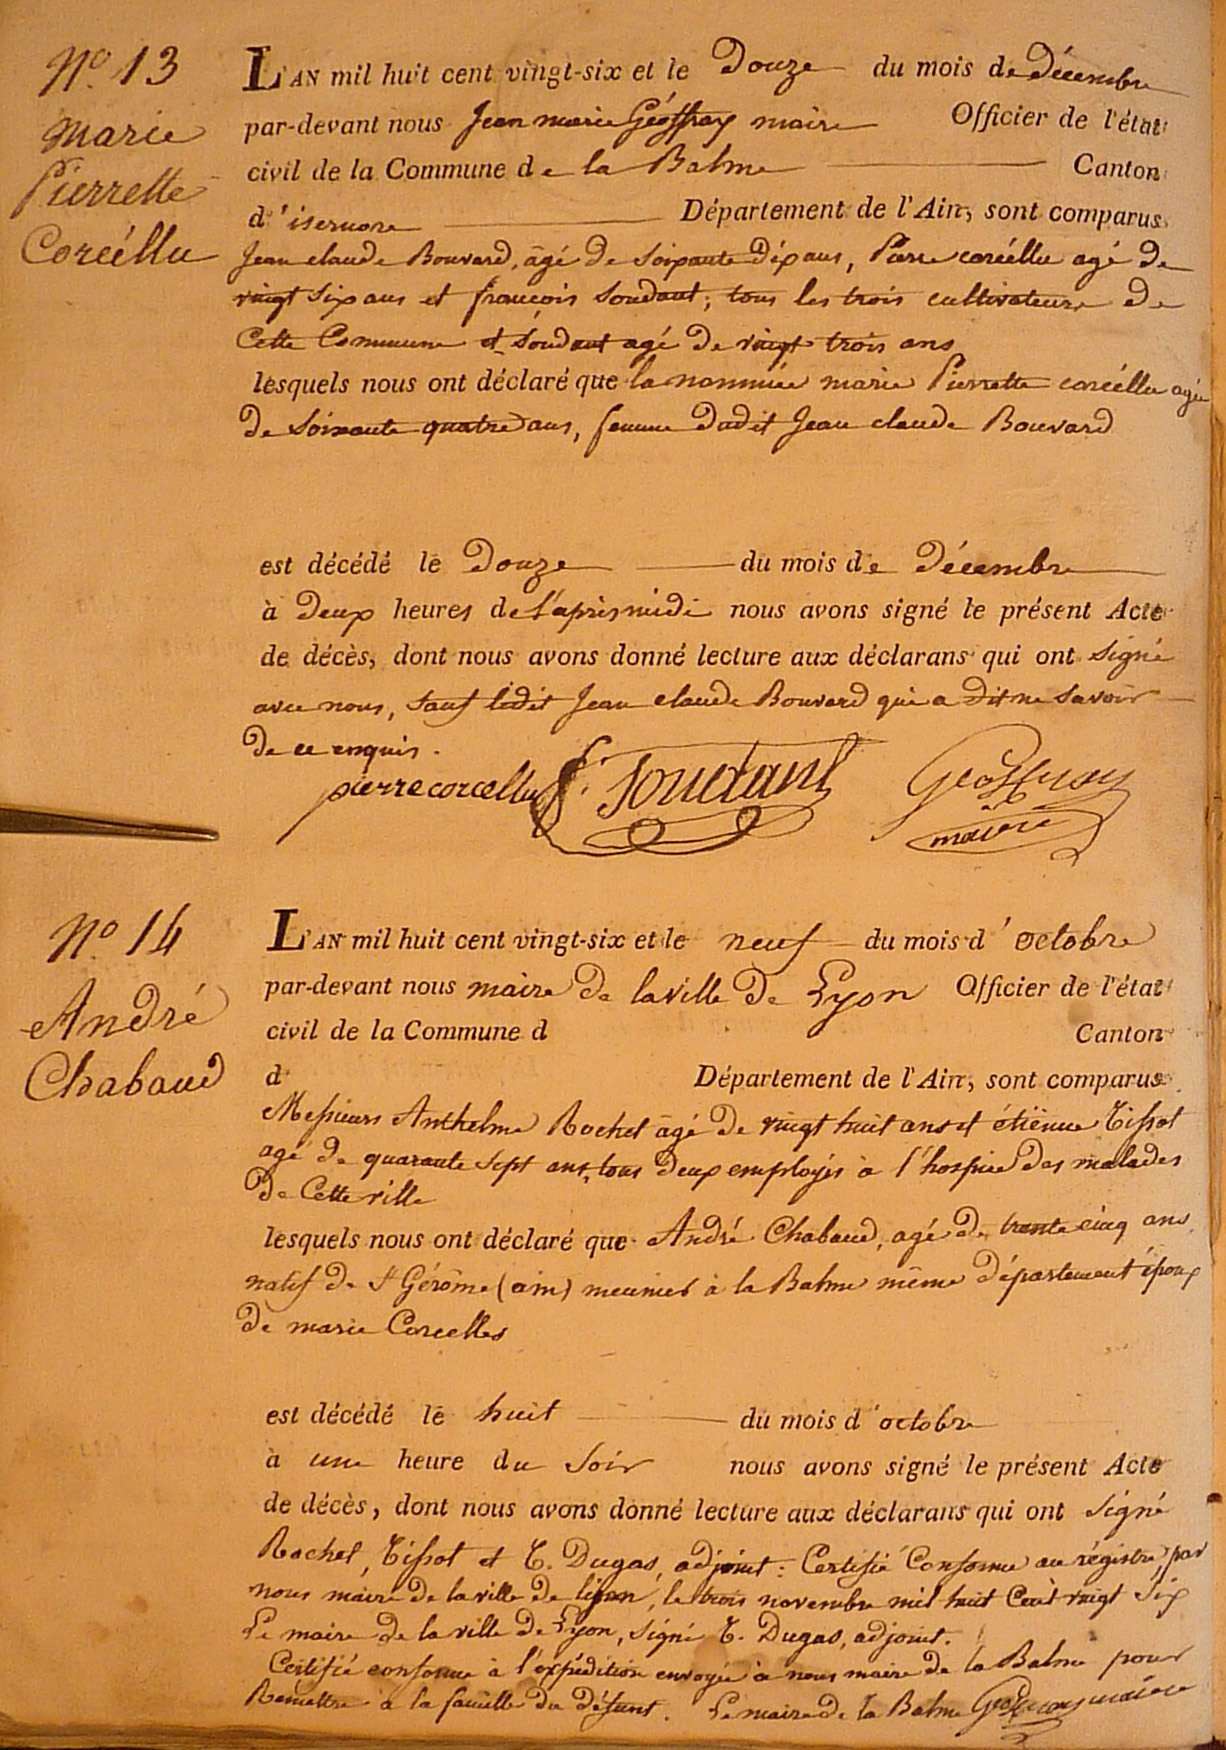 N.o 13
Marie
Pierrette
Corcéllu
L'AN mil huit cent vingt-six et le Douze du mois de Décembre
par-devant nous Jean marie Géoffray maire Officier de l'état
civil de la Commune de la Balme Canton
d'isernore Département de l'Ain, sont comparus
Jean claude Bouvard, âgé de soixante dix ans, Pierre corcéllu agé de
vingt six ans et françois soudant, tous les trois cultivateurs de
Cette Commune et soudant agé de vingt trois ans
lesquels nous ont déclaré que la nommée marie Pierrette corcéllu agée
de soixante quatre ans, femme dudit Jean claude Bouvard
est décédé le Douze du mois de Décembre
à Deux heures de l'aprismidi nous avons signé le présent Acte
de décès, dont nous avons donné lecture aux déclarans qui ont signé
avec nous, sauf ledit Jean claude Bouvard qui a dit ne savoir
de ce enquis.
pierre corcellu f. Soudant Geoffray
maire
N.o 14
André
Chabaud
L'AN mil huit cent vingt-six et le neuf du mois d'octobre
par-devant nous maire de la ville de Lyon Officier de l'état
civil de la Commune d Canton
d Département de l'Ain, sont comparus
Messieurs Anthelme Rochet âgé de vingt huit ans et étiënne Tissot
agé de quarante sept ans, tous deux employés à l'hospice des malades
de Cette ville
lesquels nous ont déclaré que André Chabaud, agé de trente cinq ans
natif de St Gérôme (ain) meunier à la Balme même département époux
de marie Corcelles
est décédé le huit du mois d'octobre
à une heure du soir nous avons signé le présent Acte
de décès, dont nous avons donné lecture aux déclarans qui ont signé
Rochet, Tissot et T. Dugas, adjoint: Certifié Conforme au régistre, par
nous maire de la ville de liyon, le trois novembre mil huit Cent vingt six
Le maire de la ville de Lyon, signé T. Dugas, adjoint.
Certifié conforme à l'expédition envoyée à nous maire de la Balme pour
Remettre à la famille du défunt. Le maire de la Balme Geoffray maire